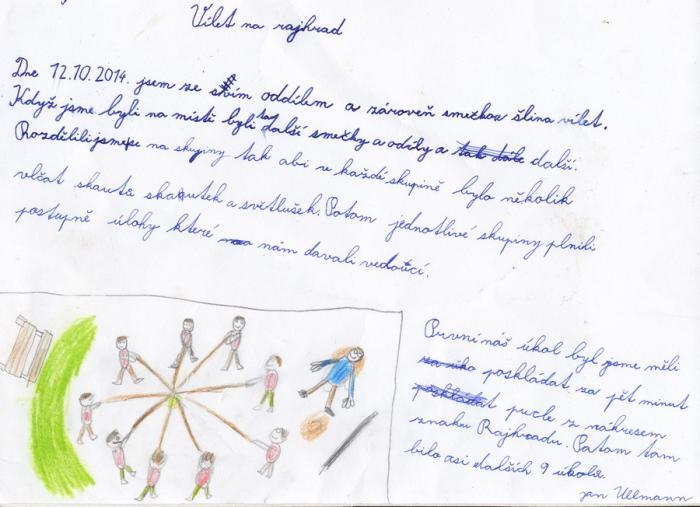 Vílet na rajhrad
Dne 12.10.2014. jsem ze svím oddílem a zároveň smečkou šlina vílet.
Když jsme byli na místě byli taj další smečky a odíly a tak dále další.
Rozdělili jsme se na skupiny tak abi ve každé skupině bylo několik
vlčat skautů skautek a světlušek. Potom jednotlivé skupiny plnili
postupně úlohy které nám davali vedoucí.
Pruvní náš úkol byl jsme měli
poskládat za pět minut
pucle z nákresem
znaku Rajhradu. Potom tam
bilo asi dalších 9 úkolů.
jan Ullmann